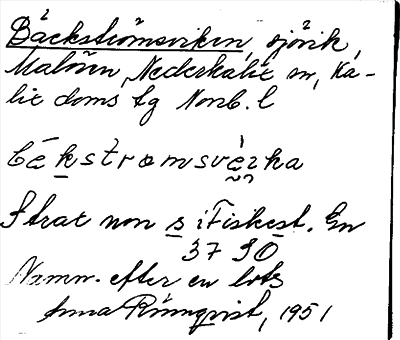 Bäckströmsviken, sjövik,
Malören, Nederkalix sn, Ka-
lix doms tg Norrb. l
bɛ̄kstrømsve̬rka
Strax non s i Fiskest. En
37 SO
Namn. efter en lots
Anna Rönnqvist, 1951